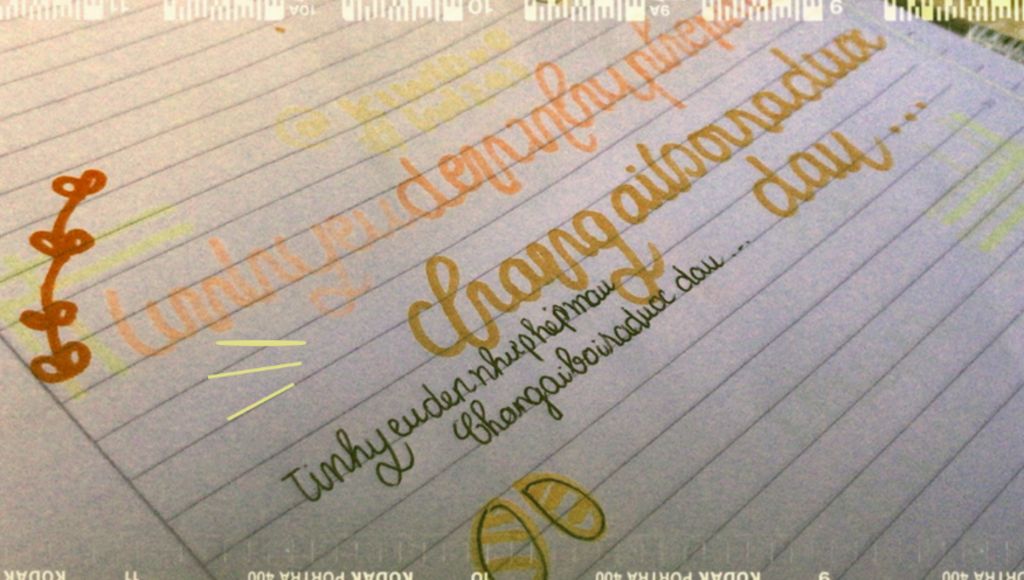 10A 10 9A 9
Tinhyeudennhuphep
Changaiboiraduoc
dau...
Tinhyeudennhuphepmau
Changaiboiraduoc dau...
KODAK 11 KODAK PORTRA 400 10 KODAK PORTRA 400 9 KODAK PORTRA 400